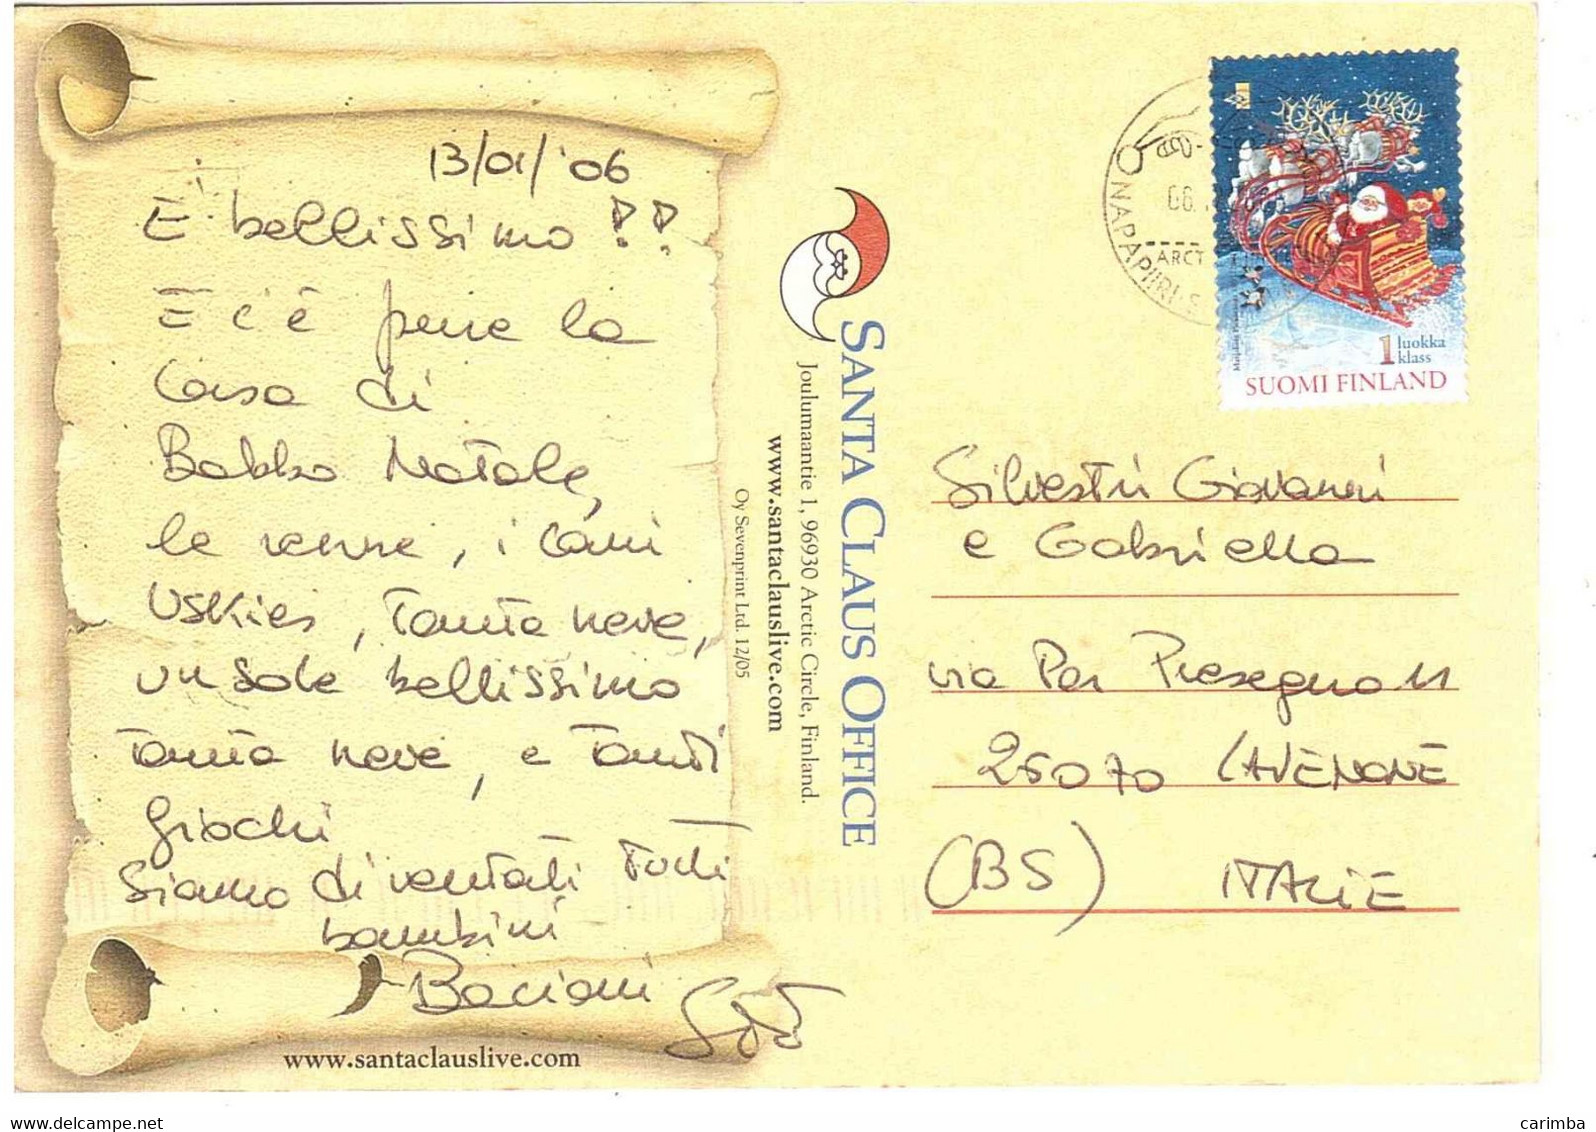 13/01/'06
E' bellissimo !!
E c'è pure la
Casa di
Babbo Natale,
le renne, i cani
Uskies, tanta neve,
un sole bellissimo
tanta neve, e tanti
giochi
Siamo diventati tutti
bambini
Bacioni
www.santaclauslive.com
SANTA CLAUS OFFICE
Joulumaantie 1, 96930 Arctic Circle, Finland.
www.santaclauslive.com
Oy Sevenprint Ltd. 12/05
NAPAPIIRI
ARCT
1 luokka
klass
SUOMI FINLAND
Silvestri Giovanni
e Gabriella
via Per Presegno 11
25070 LAVENONE
(BS) ITALIE
delcampe.net
carimba